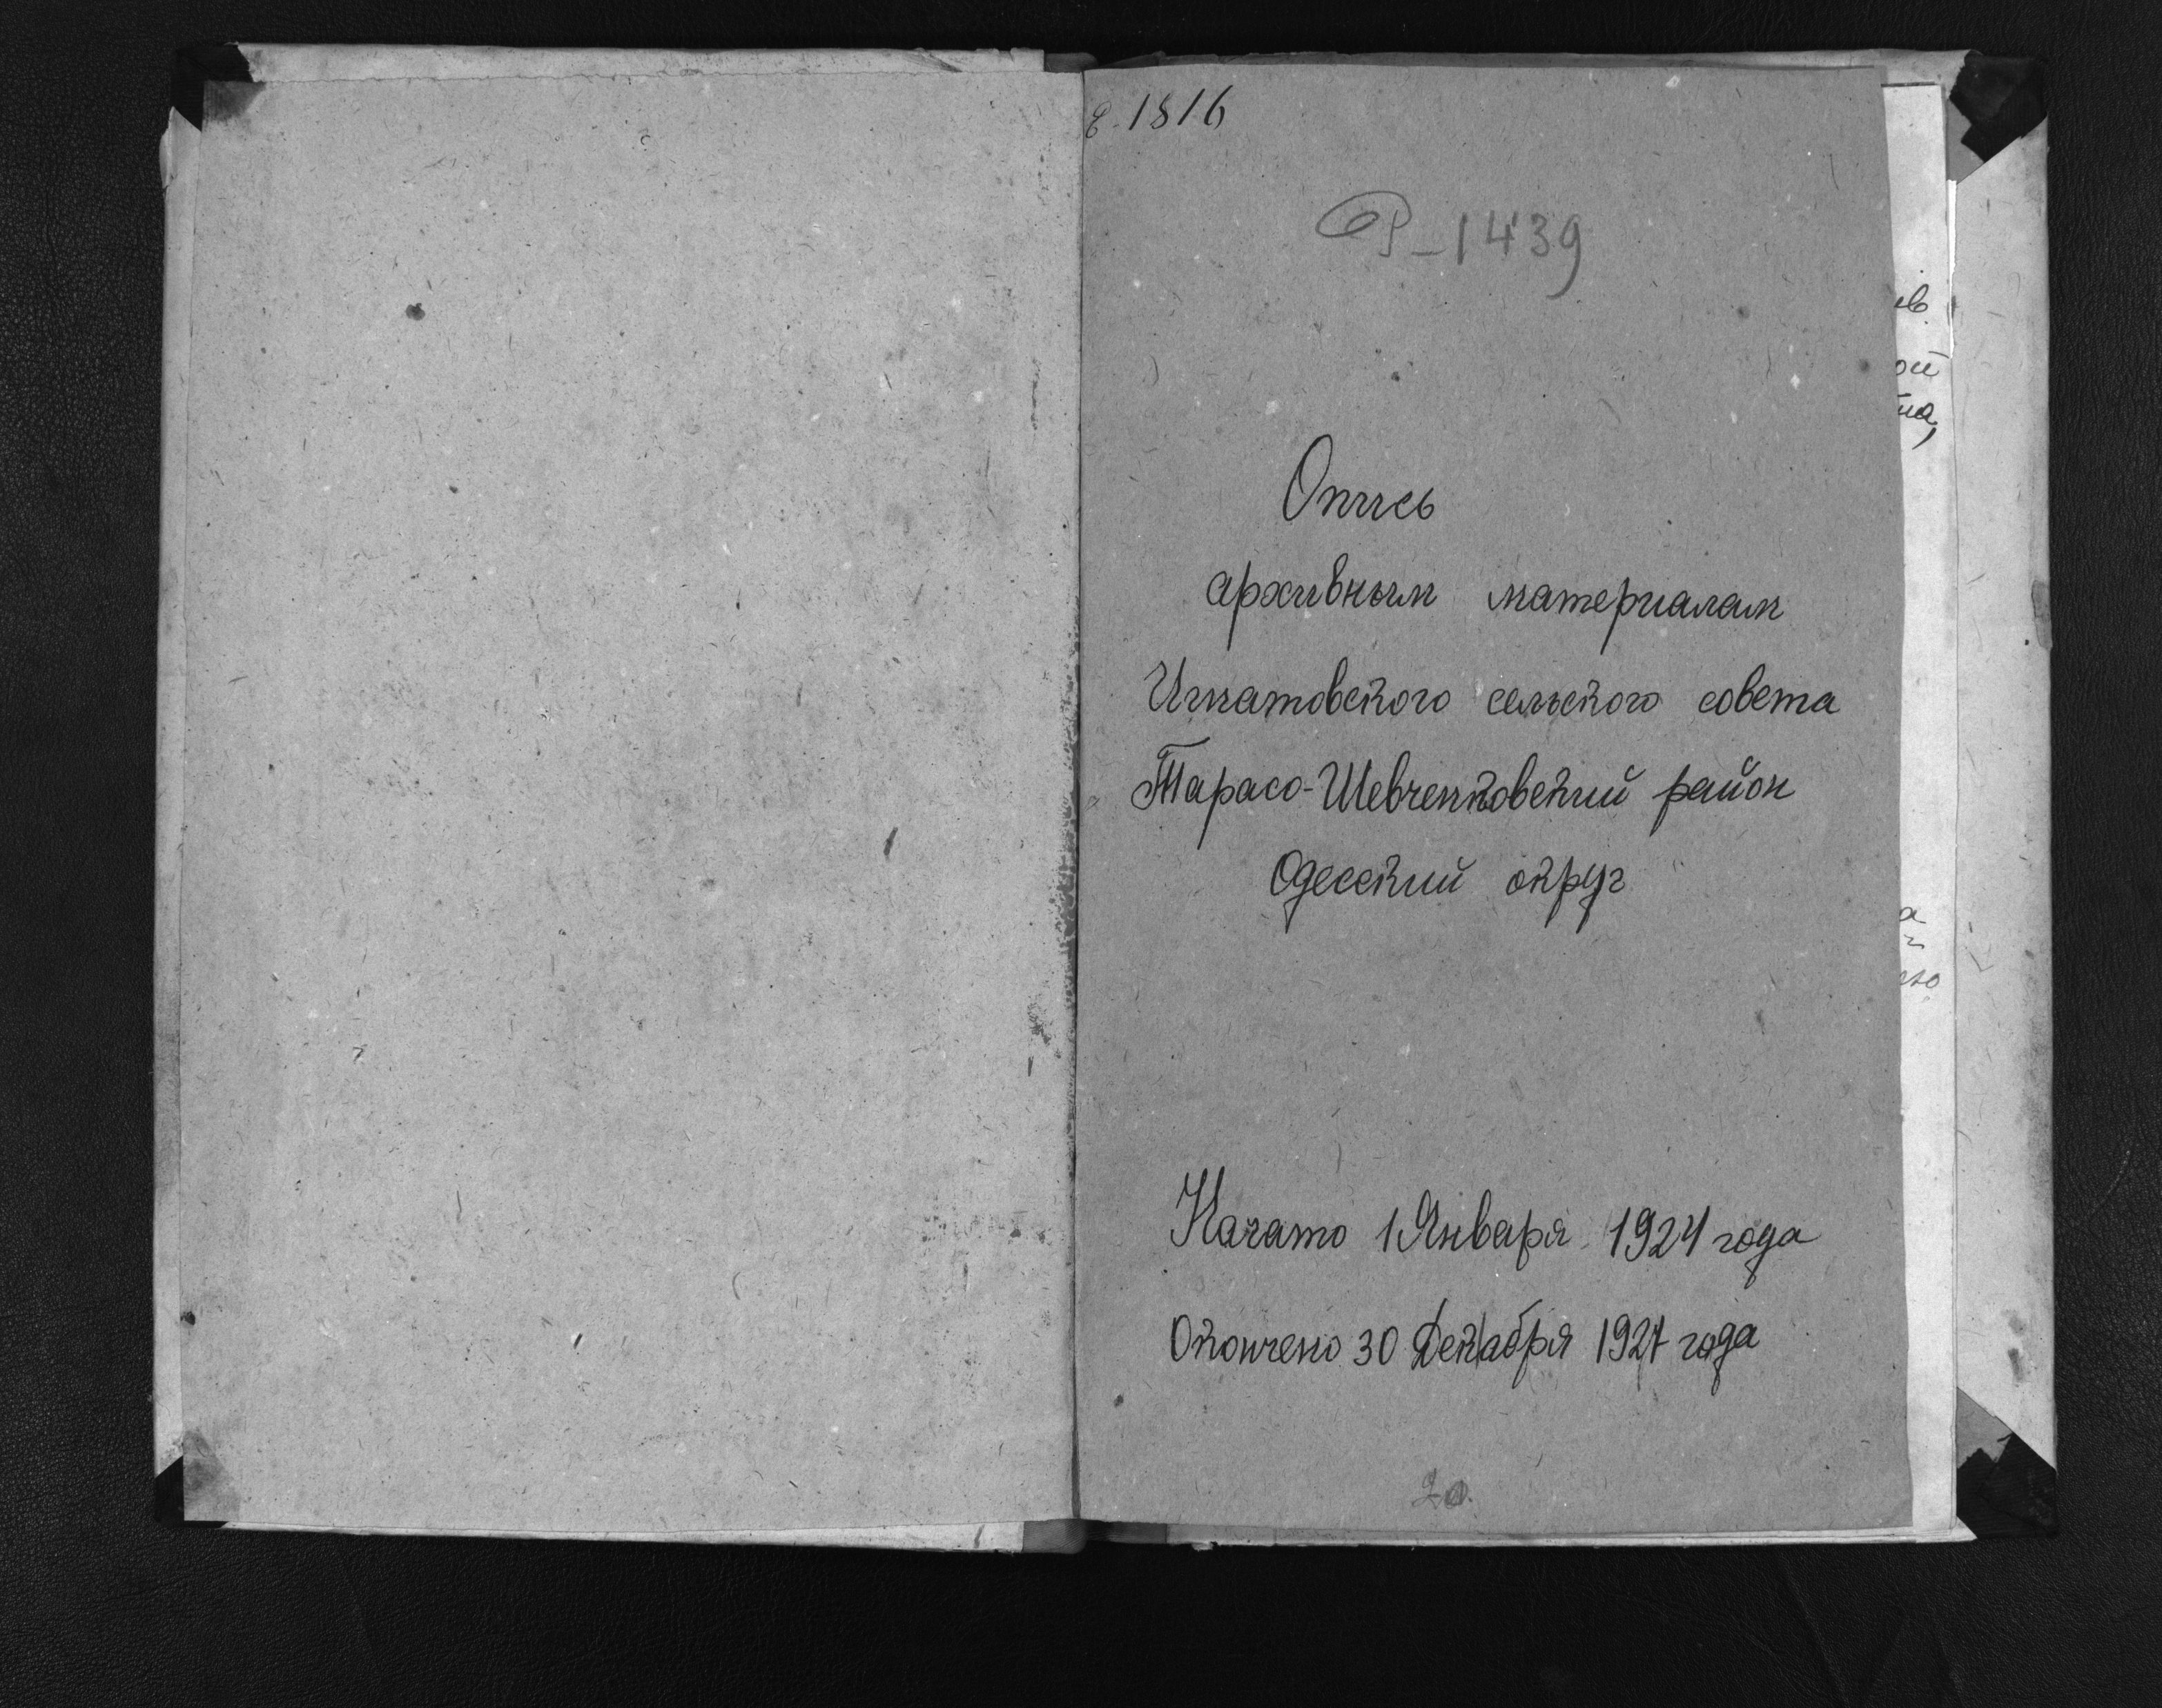 1816
Р-1439
Опись
архивным материалам
Игнатовского сельского совета
Тарасо-Шевченковский район
Одесский округ
Начато 1 Января 1924 года
Окончено 30 Декабря 1927 года